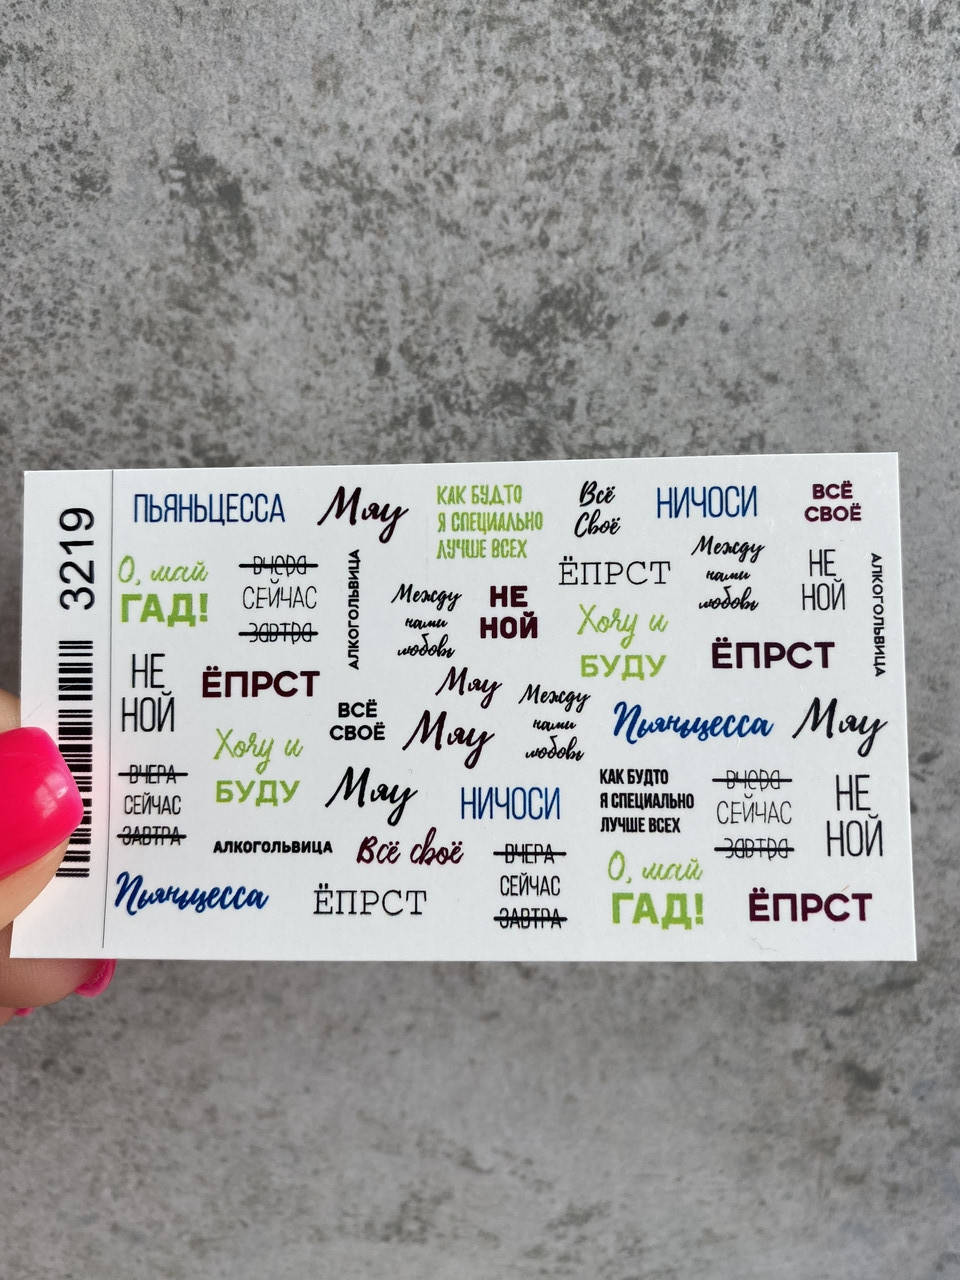 3219
ПЬЯНЬЦЕССА
Мяу
КАК БУДТО
Я СПЕЦИАЛЬНО
ЛУЧШЕ ВСЕХ
Всё
Своё
НИЧОСИ
ВСЁ
СВОЁ
О, май
ГАД!
ВЧЕРА
СЕЙЧАС
ЗАВТРА
АЛКОГОЛЬВИЦА
Между
нами
любовь
НЕ
НОЙ
ЁПРСТ
Хочу и
БУДУ
Между
нами
любовь
НЕ
НОЙ
АЛКОГОЛЬВИЦА
ЁПРСТ
НЕ
НОЙ
ЁПРСТ
Хочу и
БУДУ
ВСЁ
СВОЁ
Мяу
Мяу
Между
нами
любовь
Пьяньцесса
Мяу
ВЧЕРА
СЕЙЧАС
ЗАВТРА
Мяу
НИЧОСИ
КАК БУДТО
Я СПЕЦИАЛЬНО
ЛУЧШЕ ВСЕХ
ВЧЕРА
СЕЙЧАС
ЗАВТРА
НЕ
НОЙ
АЛКОГОЛЬВИЦА
Всё своё
ВЧЕРА
СЕЙЧАС
ЗАВТРА
О, май
ГАД!
Пьяньцесса
ЁПРСТ
ЁПРСТ